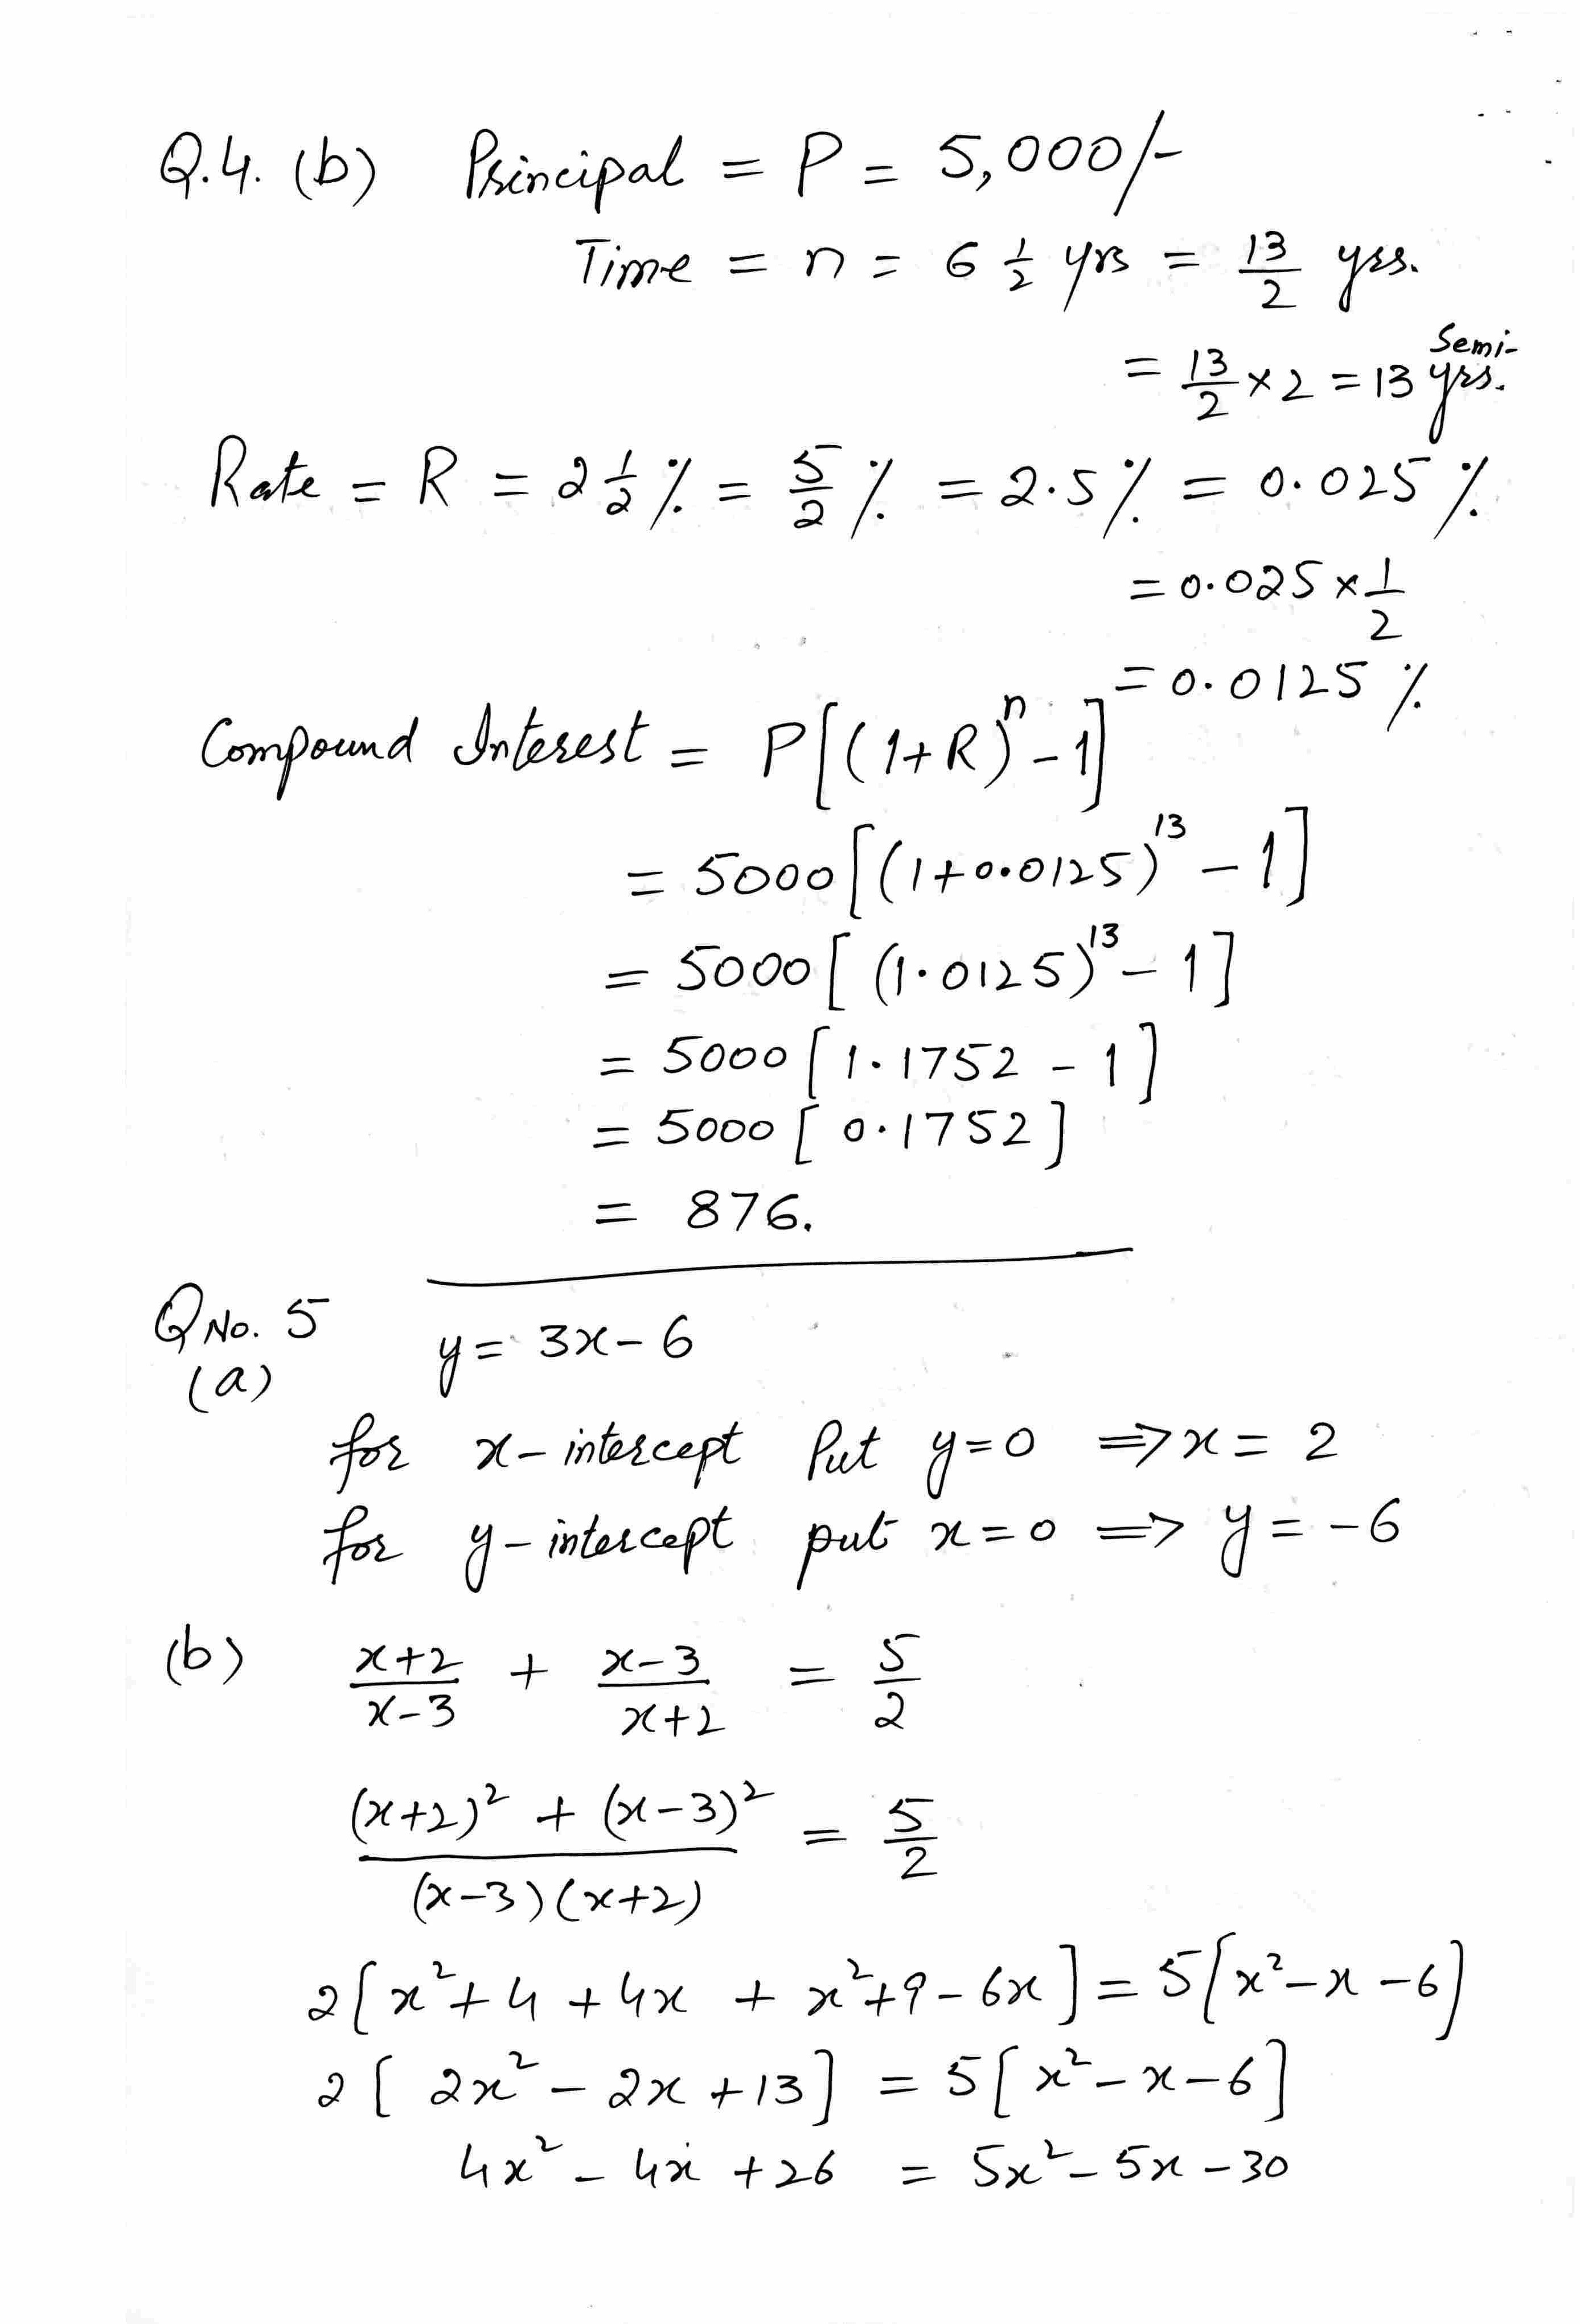 Q.4. (b) Principal = P = 5,000/-
Time = n = 6 1/2 yrs = 13/2 yrs.
= 13/2 × 2 = 13 Semi-yrs.
Rate = R = 2 1/2 % = 5/2 % = 2.5 % = 0.025 %
= 0.025 × 1/2
= 0.0125 %
Compound Interest = P[(1+R)ⁿ - 1]
= 5000[(1+0.0125)¹³ - 1]
= 5000[(1.0125)¹³ - 1]
= 5000[1.1752 - 1]
= 5000[0.1752]
= 876.
Q No. 5
(a) y = 3x - 6
for x-intercept Put y=0 => x = 2
for y-intercept put x=0 => y = -6
(b) (x+2)/(x-3) + (x-3)/(x+2) = 5/2
((x+2)² + (x-3)²)/((x-3)(x+2)) = 5/2
2[x²+4+4x + x²+9-6x] = 5[x²-x-6]
2[2x² - 2x + 13] = 5[x²-x-6]
4x² - 4x + 26 = 5x² - 5x - 30